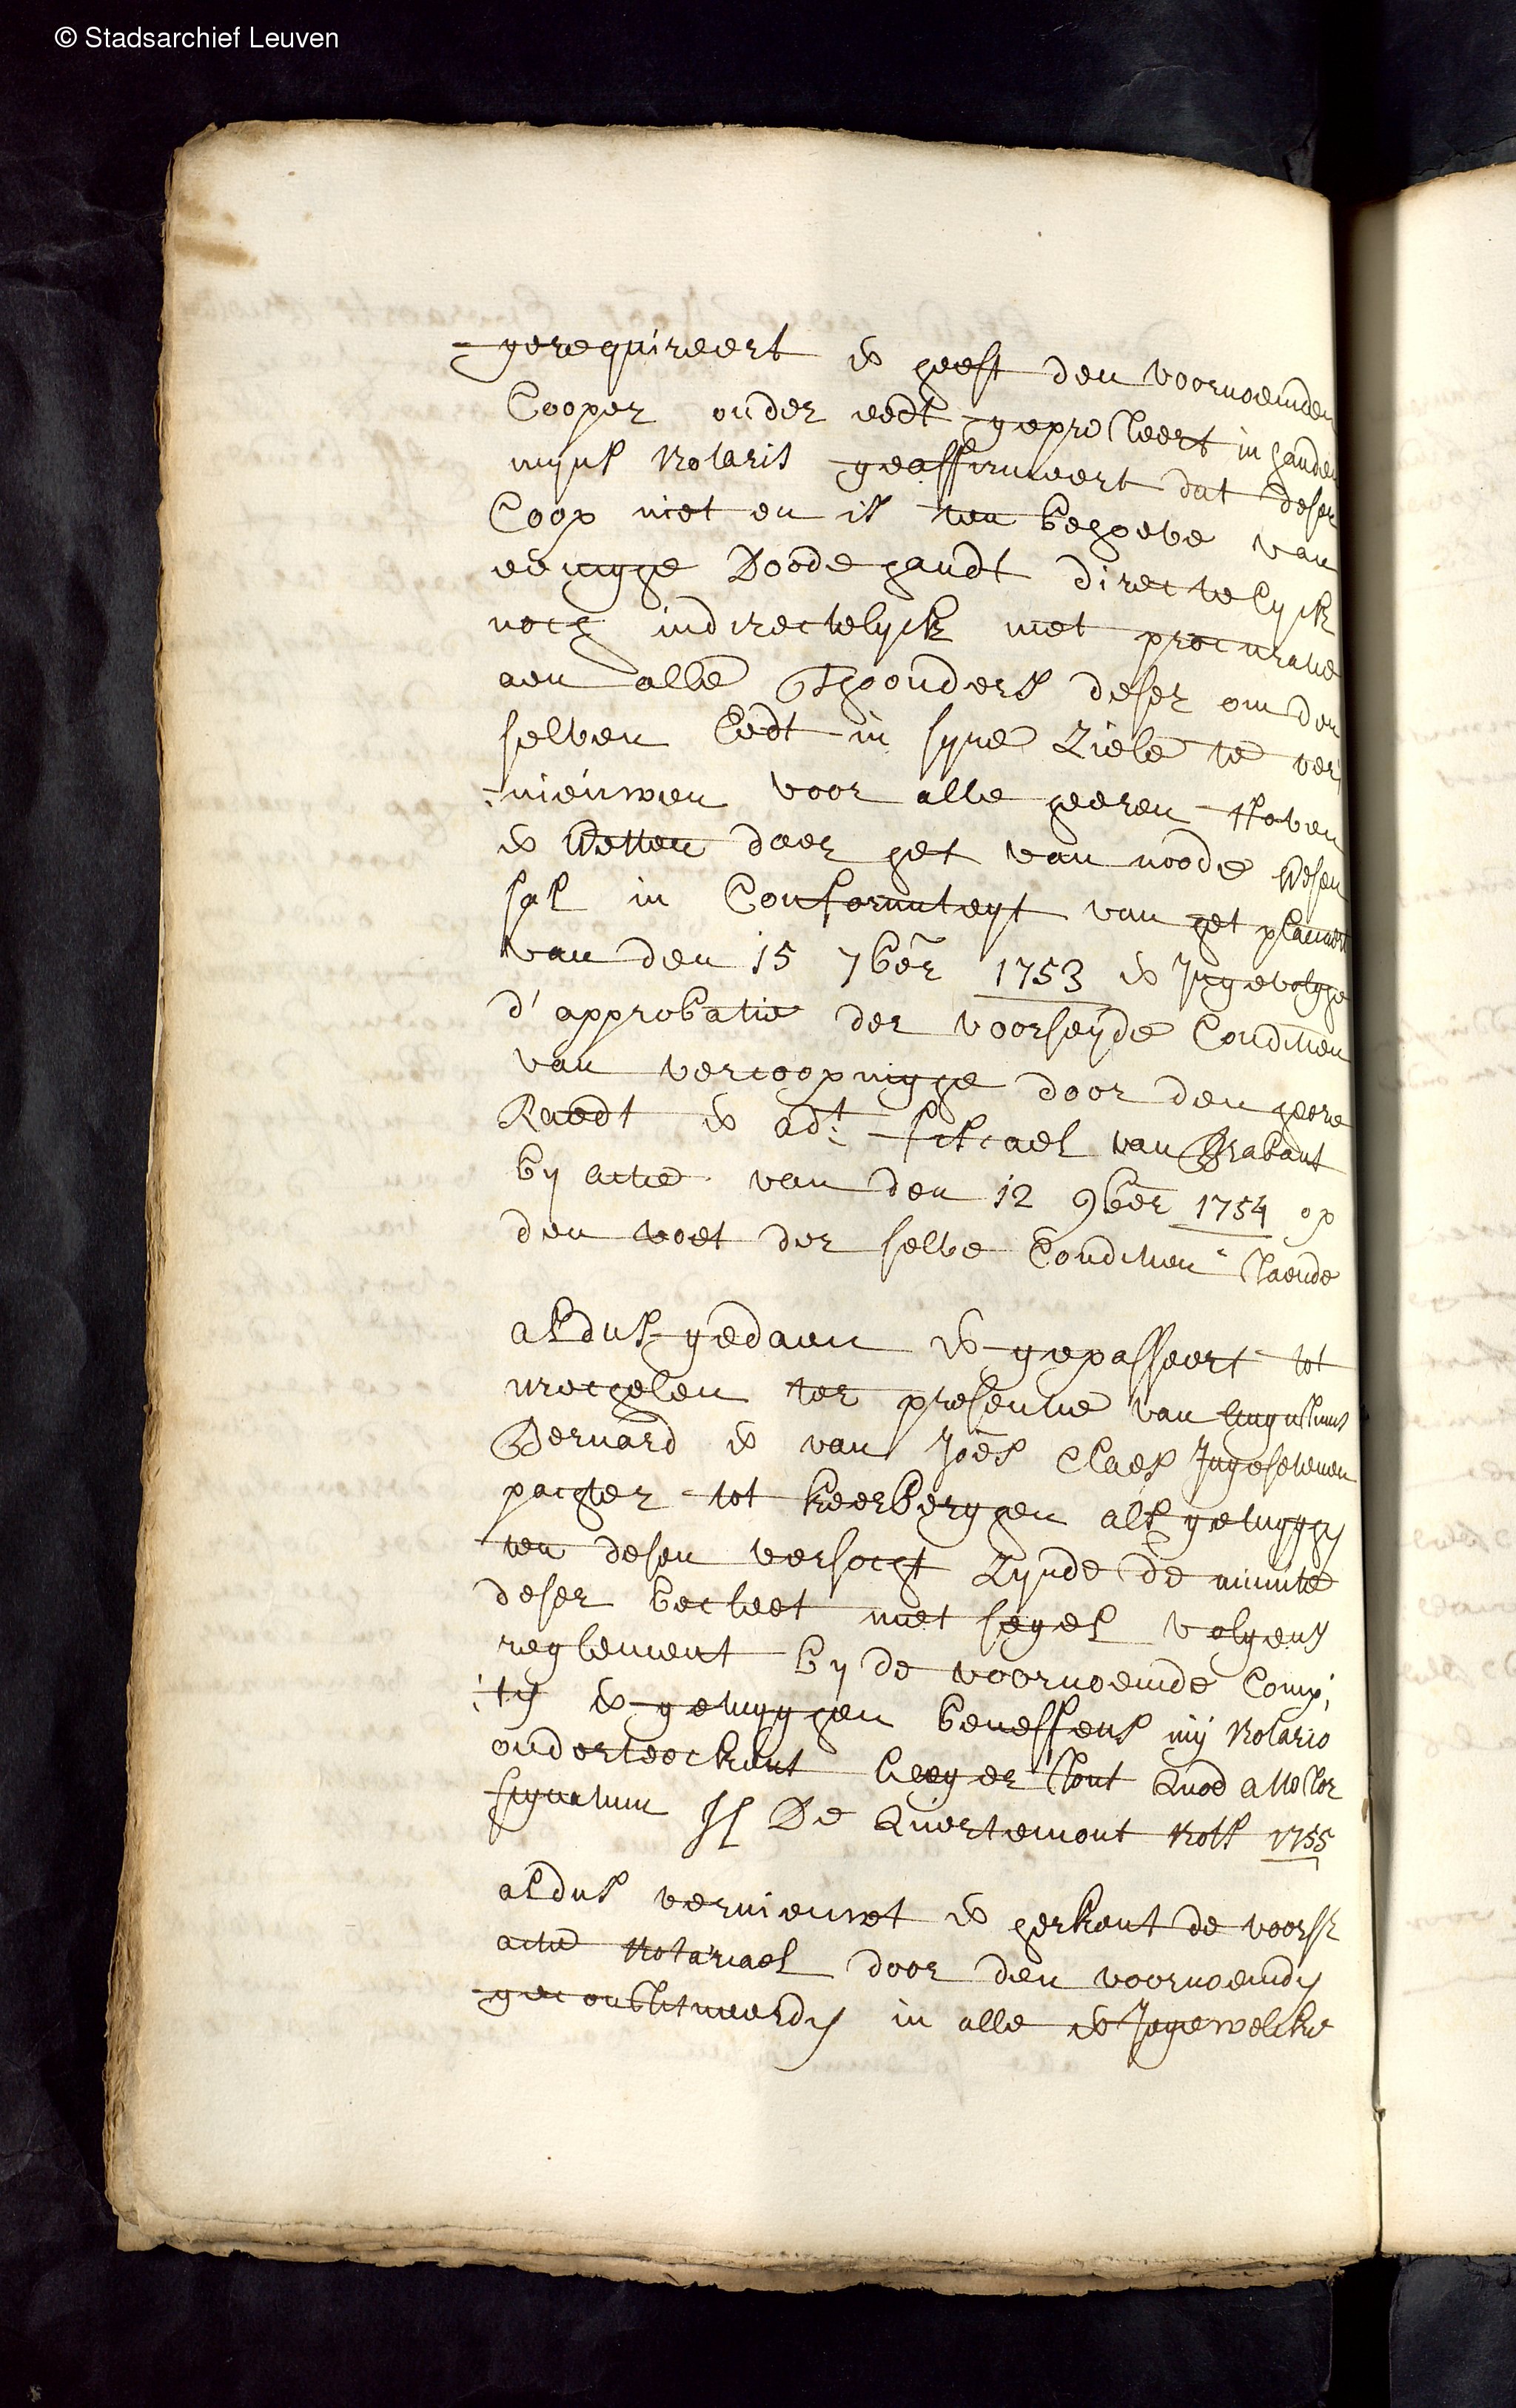 © Stadsarchief Leuven
gerequireert & heeft den voornoemden
Cooper onder eedt gepresteert in handen
mijns Notaris geaffirmeert dat desen
Coop niet en is ten behoeve van
eenighe Doode handt directelyck
noch indirectelyck met procuratie
aen alle Thoonders deser om den
selven Eedt in syne Ziele te ver
:nieuwen voor alle heeren Hoven
& Wetten daer het van noode wesen
sal in Conformiteyt van het placcaet
van den 15 7ber 1753 & Ingevolghe
d'approbatie der voorseyde Conditien
van vercoopinghe door den heere
Raedt & adt: fiscael van Brabant
by actie van den 12 9ber 1754 op
den voet der selve Conditien staende
aldus gedaen & gepasseert tot
Mechelen ter presentie van Augustinus
Bernard & van Joês Claes Ingesetenen
pachter tot Keerberghen als getuyghen
ten desen versocht Zynde de minute
deser becleet met segel volgens
reglement by de voornoemde Comp:
:ten & getuyghen beneffens my Notario
onderteeckent leeger stont Quod attestor
signatum JS De Quertemont Nots 1755
aldus vernieuwt & herkent de voors
actie Notariael door den voornoemden
geconstitueerden in alle & Iegewelcke